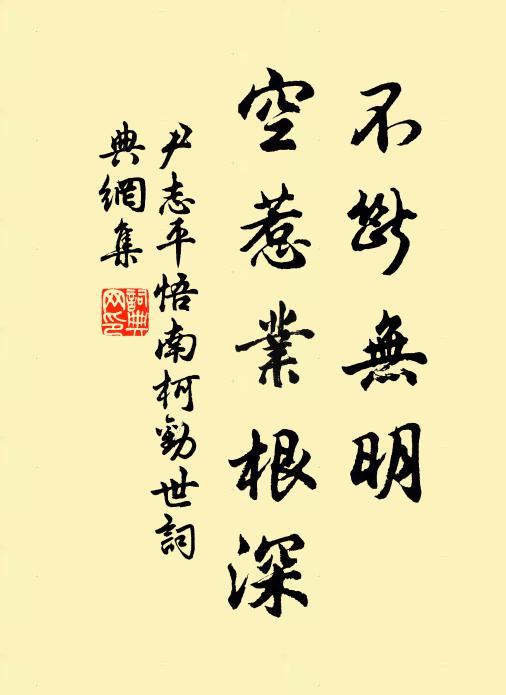 不斷無明
空惹業根深
尹志平悟南柯勸世詞
典網集
詞典网印